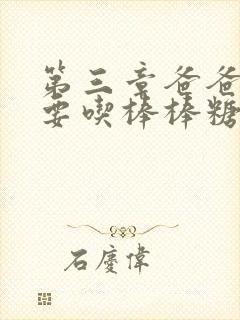 第三章爸爸
要喫棒棒糖
石慶偉